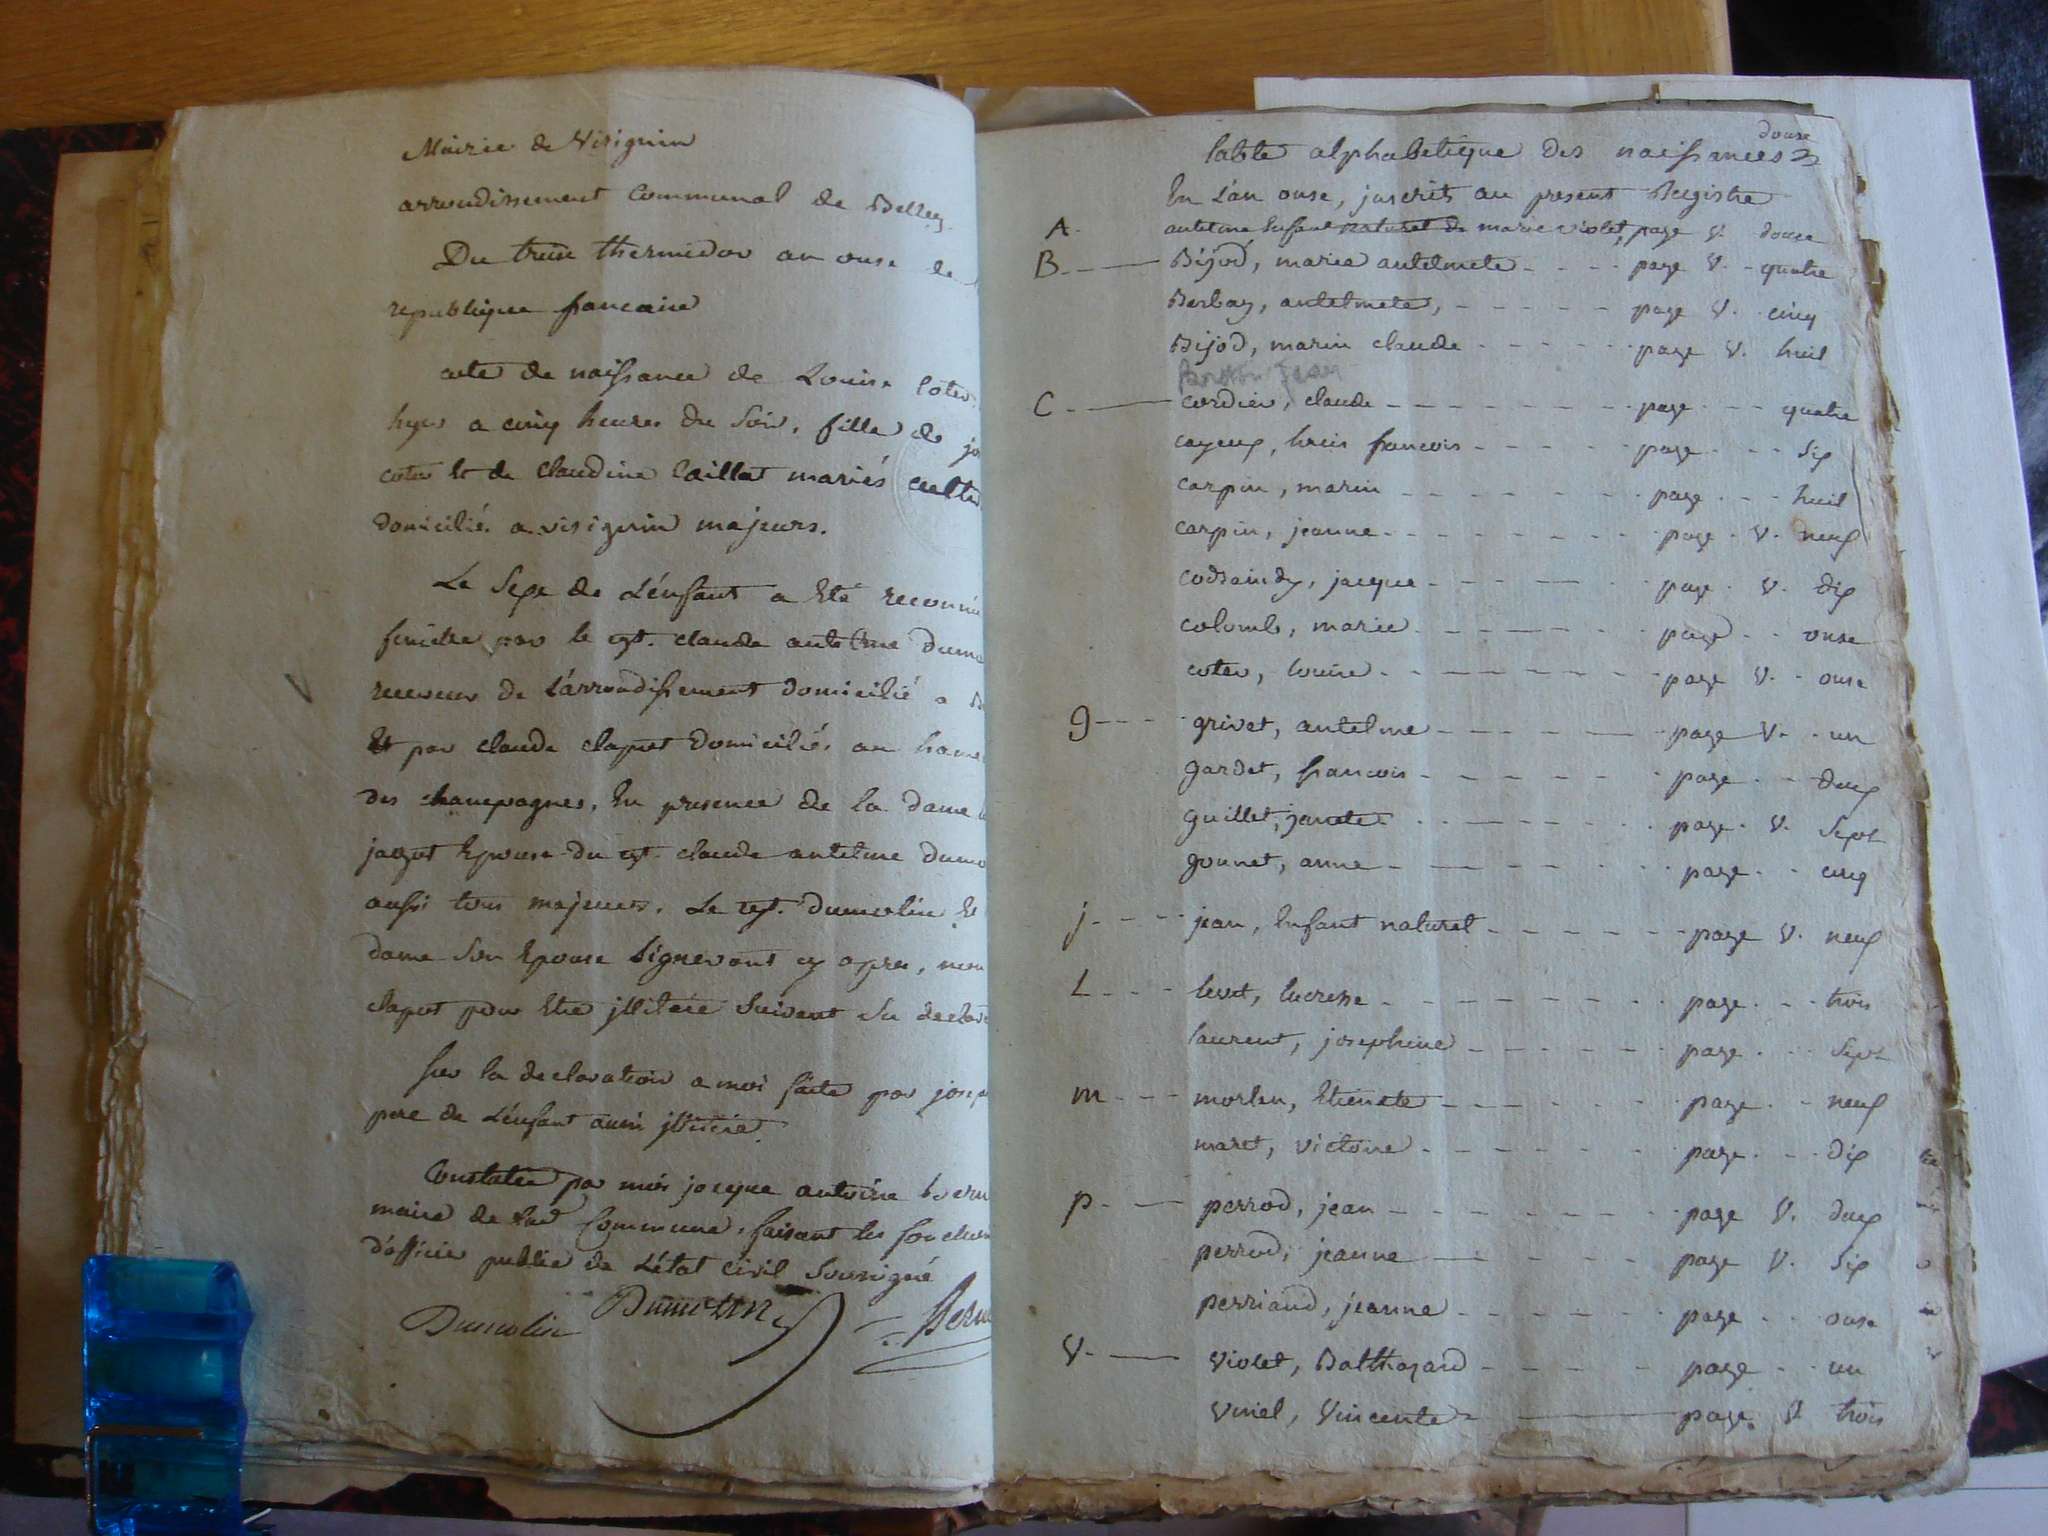 Mairie de Virignin
arrondissement Communal de Belley
Du treize thermidor an onse de
republique francaise
acte de naissance de Louise Coter
hyer a cinq heures du Soir, fille de jo
coter Et de Claudine Caillat mariés culti
domiciliés a virignin majeurs.
Le Sexe de L'énfant a Eté reconnu
femelle par le cyt. claude antelme dumo
receveur de L'arrondissement domicilié a B
Et par claude claput domiciliés au hame
des champagnes, En presence de la dame
jagot Epouse du cyt. claude antelme dumo
aussi tous majeurs. Le cyt. dumolin Et
dame Son Epouse Signeront cy apres, non
claput pour Etre jllitere Suivant Sa declara
Sur la declaration a moi faite par josep
pere de L'énfant aussi jllitere.
Constatée par moi jacque antoine bern
maire de lad. Commune, faisant les fonction
d'officier public de L'état civil Soussigné
Dumolin Dumolin Bern
douse
table alphabetique des naissances
En L'an onse, jnscrits au present Registre
A. antelme Enfant naturel de marie violet, page v. douse
B. Bijod, marie antelmete page v. quatre
Berlay, antelmete, page v. cinq
Bijod, marin claude page v. huit
jean
C. cordier, claude page quatre
cayeux, louis francois page six
carpin, marin page huit
carpin, jeanne page v. neuf
jacque page v. dix
colomb, marie page onse
coter, louise page v. onse
g grivet, antelme page v. un
gardet, francois page deux
guillet, janete page v. Sept
gounet, anne page cinq
j. jean, Enfant naturel page v. neuf
L levet, lucresse page trois
laurent, josephine page Sept
m morlin, Etienete page neuf
maret, victoire page dix
p. perrod, jean page v. deux
perrod, jeanne page v. Six
perriand, jeanne page onse
V. Violet, Balthazard page un
Viriel, Vincente page v trois